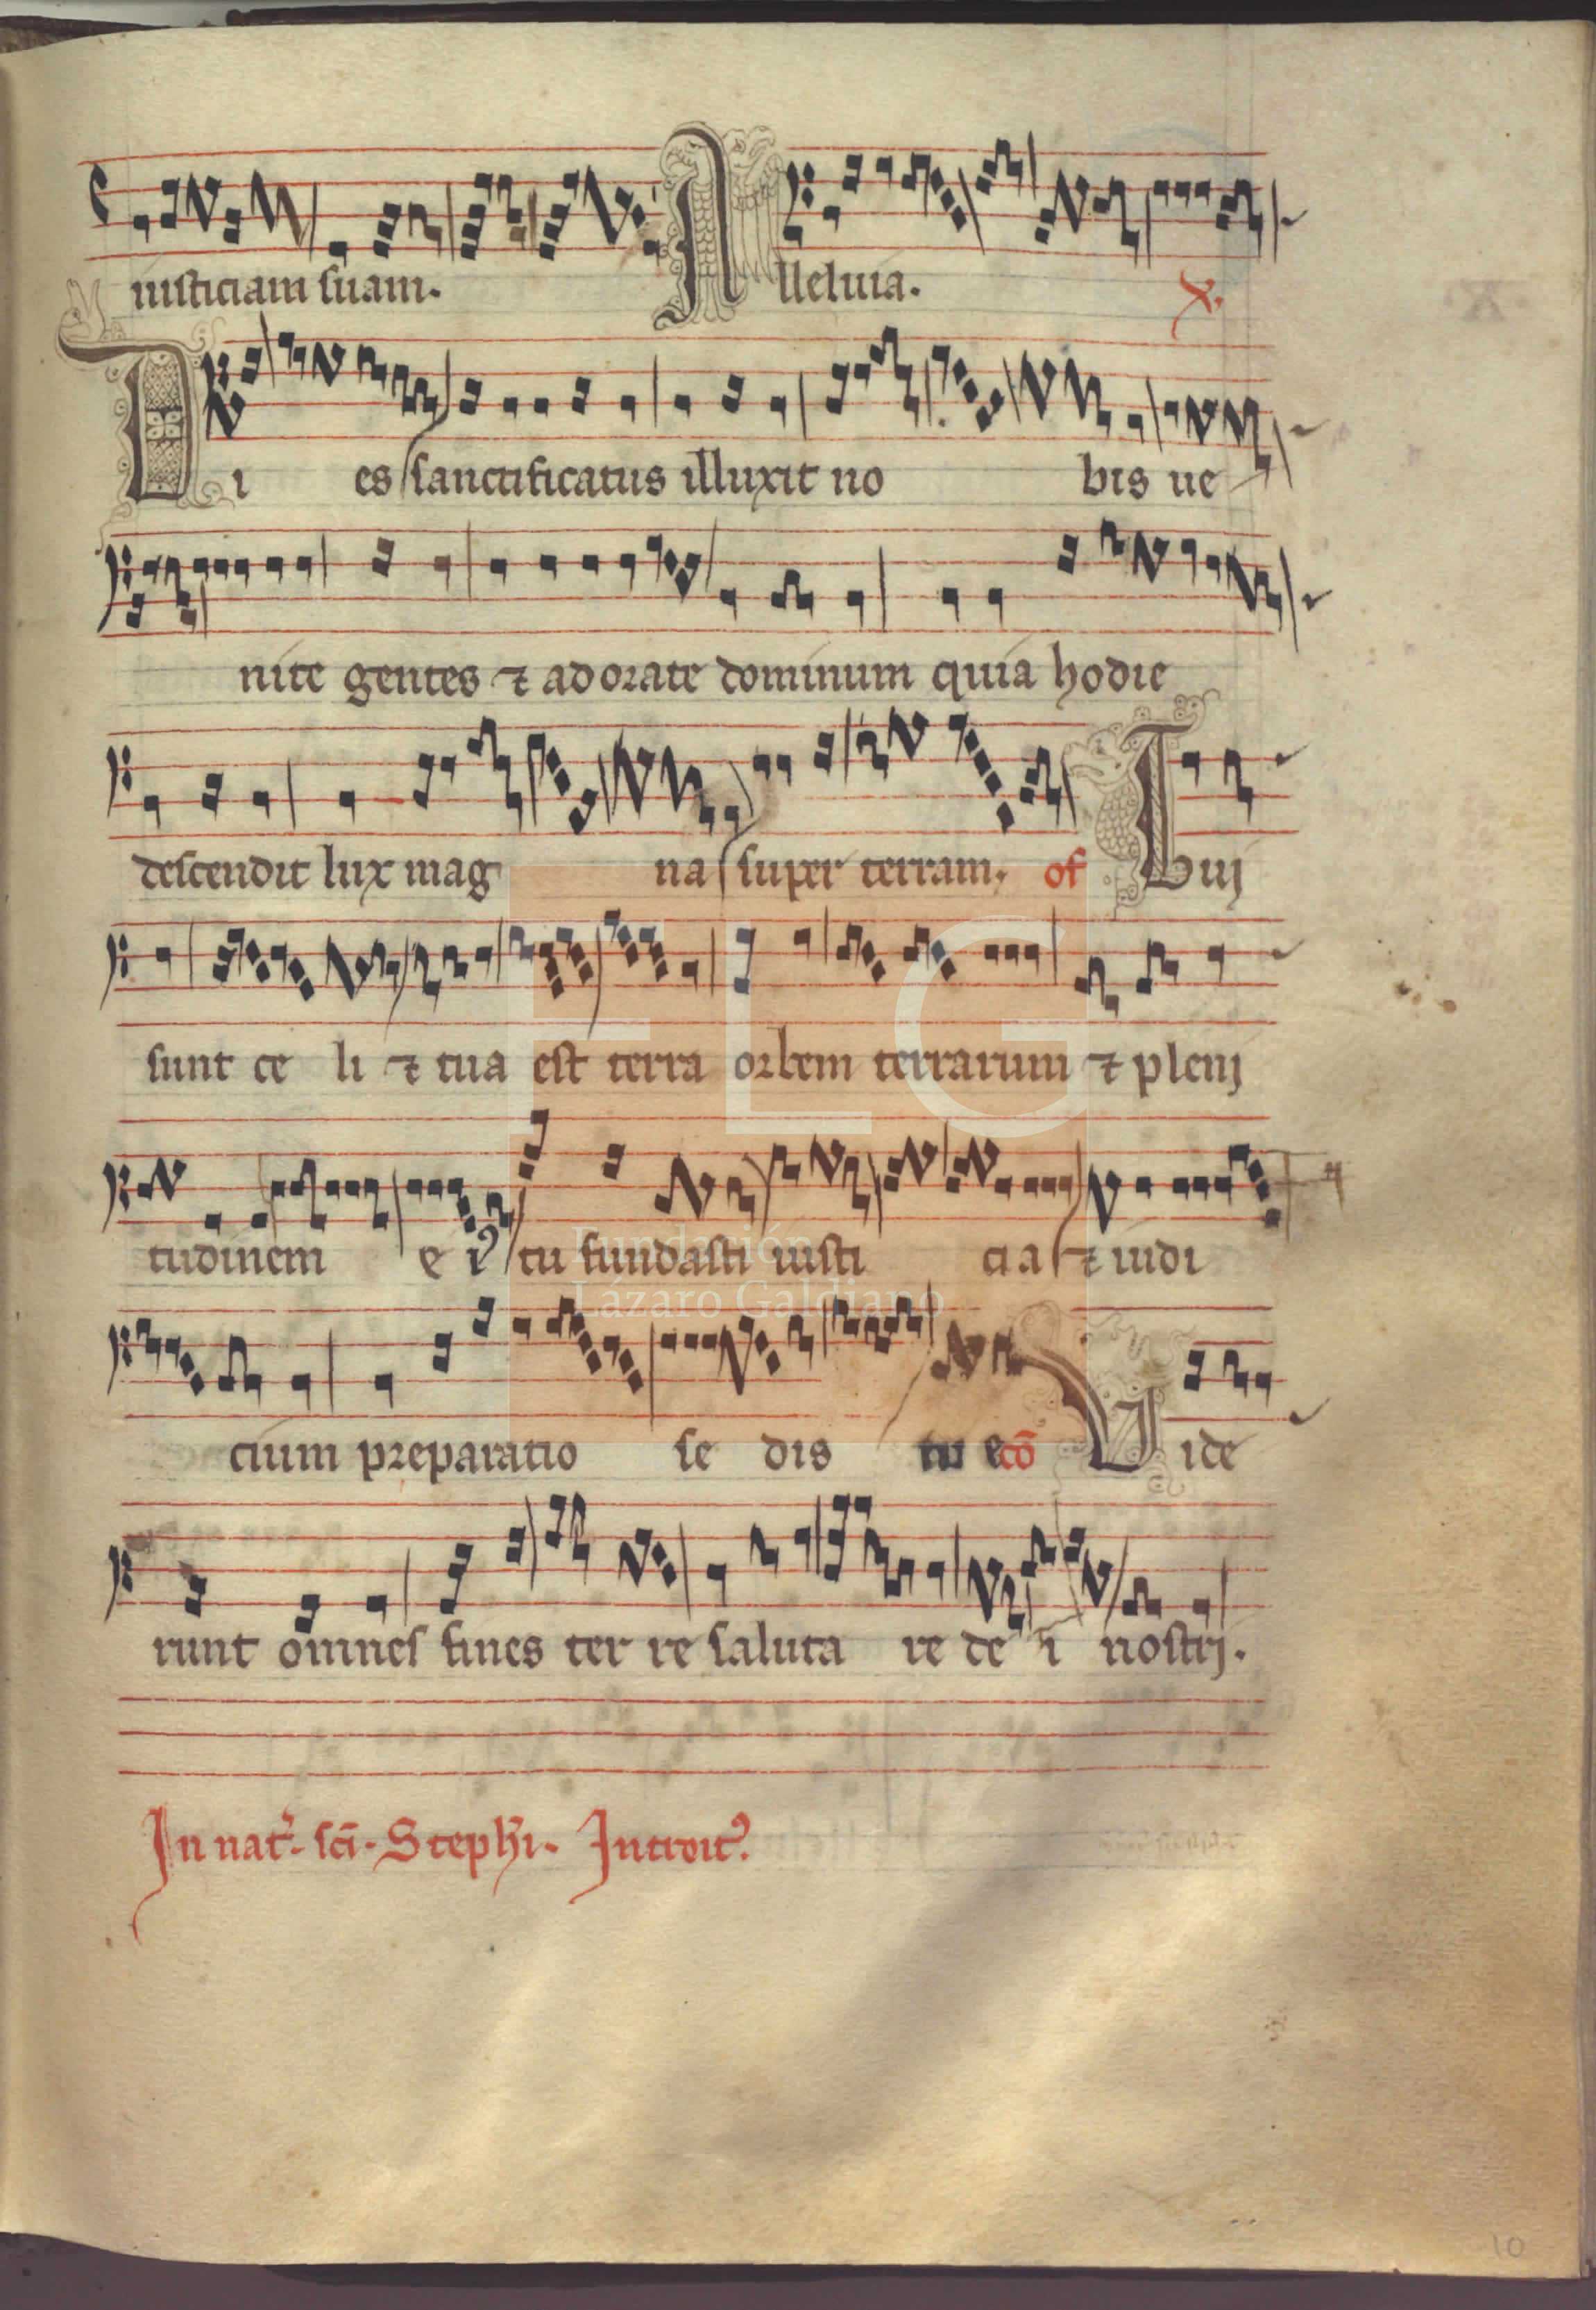 iusticiam suam. Alleluia. X.
Dies sanctificatus illuxit nobis ue
nite gentes ⁊ adorate dominum quia hodie
descendit lux magna super terram. of Tuij
sunt celi ⁊ tua est terra orbem terrarum ⁊ plenj
tudinem ei⁹ tu fundasti iusticia ⁊ iudi
cium preparatio sedis tue cō Uide
runt omnes fines terre salutare dei nostrj.
In nat. sci. Stephi. Introit⁹.
FLG
Fundación
Lázaro Galdiano
10